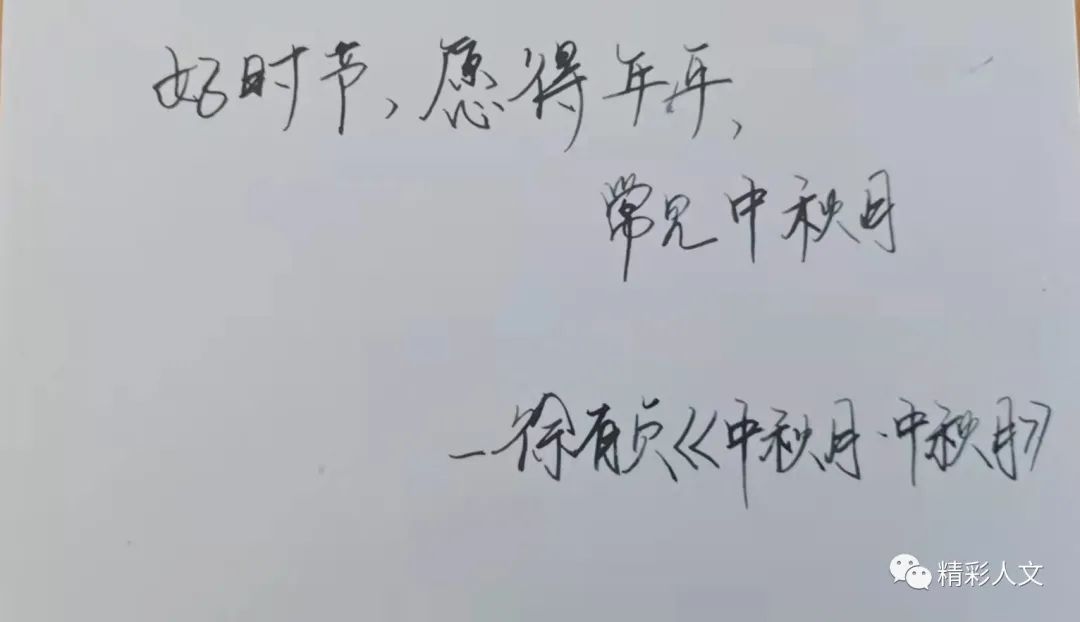 好时节，愿得年年，
常见中秋月
—徐有贞《中秋月·中秋月》
精彩人文